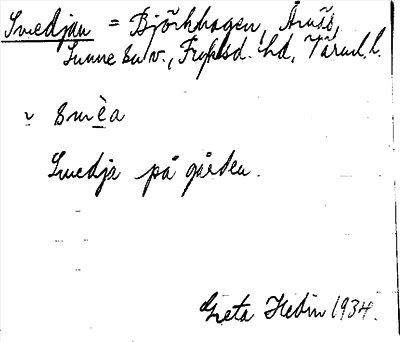 Smedjan = Björkhagen, Årnäs,
Sunne sn v., Fryksd. hd, Värml. l.
˅ smèa
Smedja på gården.
Greta Hedin 1934.